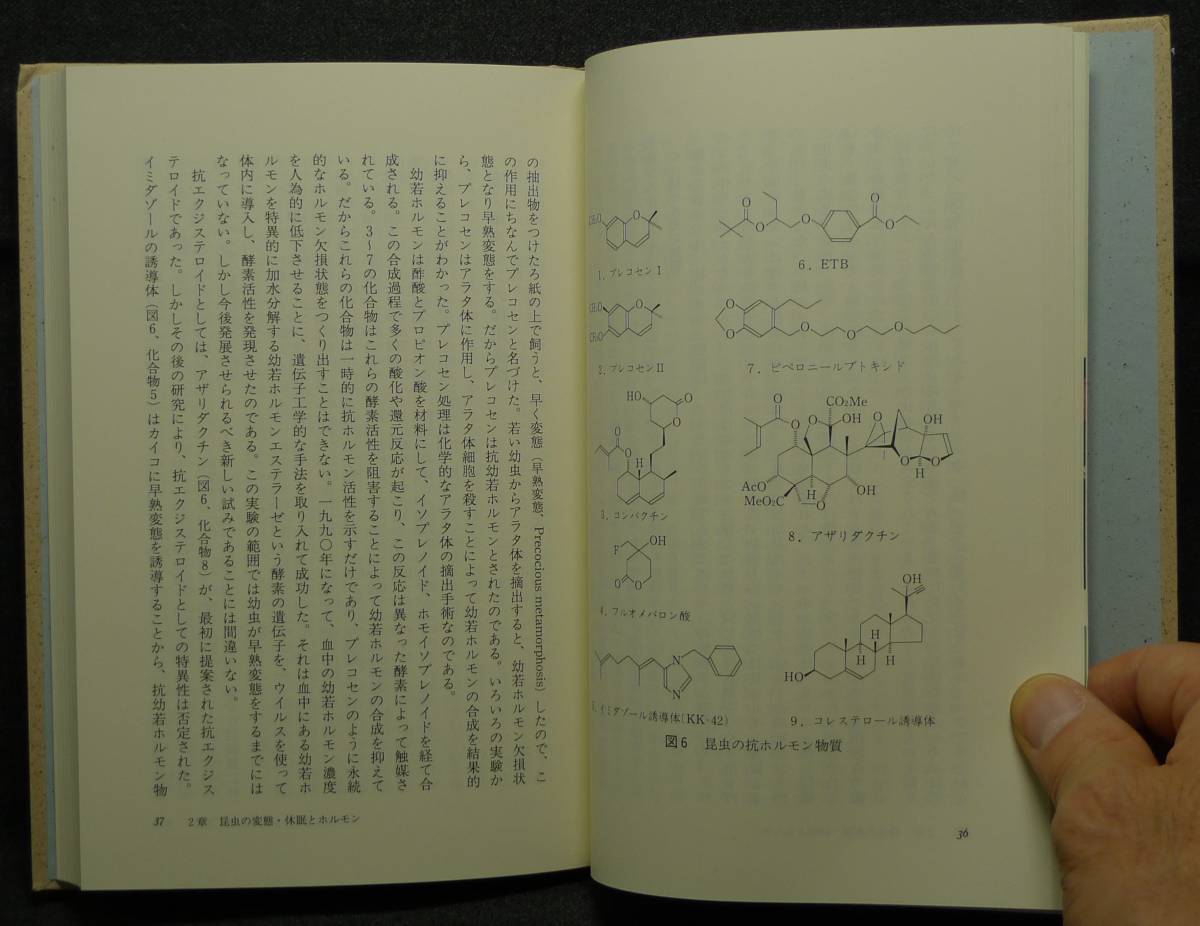 CH₃O
1．プレコセンⅠ
CH₃O
CH₃O
2．プレコセンⅡ
HO
O
O
O
O
3．コンパクチン
F
OH
O
O
4．フルオメバロン酸
N
N
5．イミダゾール誘導体(KK-42)
O
O
O
O
O
6．ETB
O
O
O
O
O
7．ピペロニールブトキシド
O
O
O
CO₂Me
OH
O
OH
O
O
O
H
H
AcO
MeO₂C
O
OH
8．アザリダクチン
OH
H
H
H
HO
9．コレステロール誘導体
図6　昆虫の抗ホルモン物質
36
の抽出物をつけたろ紙の上で飼うと、早く変態（早熟変態、Precocious metamorphosis）したので、こ
の作用にちなんでプレコセンと名づけた。若い幼虫からアラタ体を摘出すると、幼若ホルモン欠損状
態となり早熟変態をする。だからプレコセンは抗幼若ホルモンとされたのである。いろいろの実験か
ら、プレコセンはアラタ体に作用し、アラタ体細胞を殺すことによって幼若ホルモンの合成を結果的
に抑えることがわかった。プレコセン処理は化学的なアラタ体の摘出手術なのである。
幼若ホルモンは酢酸とプロピオン酸を材料にして、イソプレノイド、ホモイソプレノイドを経て合
成される。この合成過程で多くの酸化や還元反応が起こり、この反応は異なった酵素によって触媒さ
れている。3〜7の化合物はこれらの酵素活性を阻害することによって幼若ホルモンの合成を抑えて
いる。だからこれらの化合物は一時的に抗ホルモン活性を示すだけであり、プレコセンのように永続
的なホルモン欠損状態をつくり出すことはできない。一九九〇年になって、血中の幼若ホルモン濃度
を人為的に低下させることに、遺伝子工学的な手法を取り入れて成功した。それは血中にある幼若ホ
ルモンを特異的に加水分解する幼若ホルモンエステラーゼという酵素の遺伝子を、ウイルスを使って
体内に導入し、酵素活性を発現させたのである。この実験の範囲では幼虫が早熟変態をするまでには
なっていない。しかし今後発展させられるべき新しい試みであることには間違いない。
抗エクジステロイドとしては、アザリダクチン（図6、化合物8）が、最初に提案された抗エクジス
テロイドであった。しかしその後の研究により、抗エクジステロイドとしての特異性は否定された。
イミダゾールの誘導体（図6、化合物5）はカイコに早熟変態を誘導することから、抗幼若ホルモン物
37　2章　昆虫の変態・休眠とホルモン